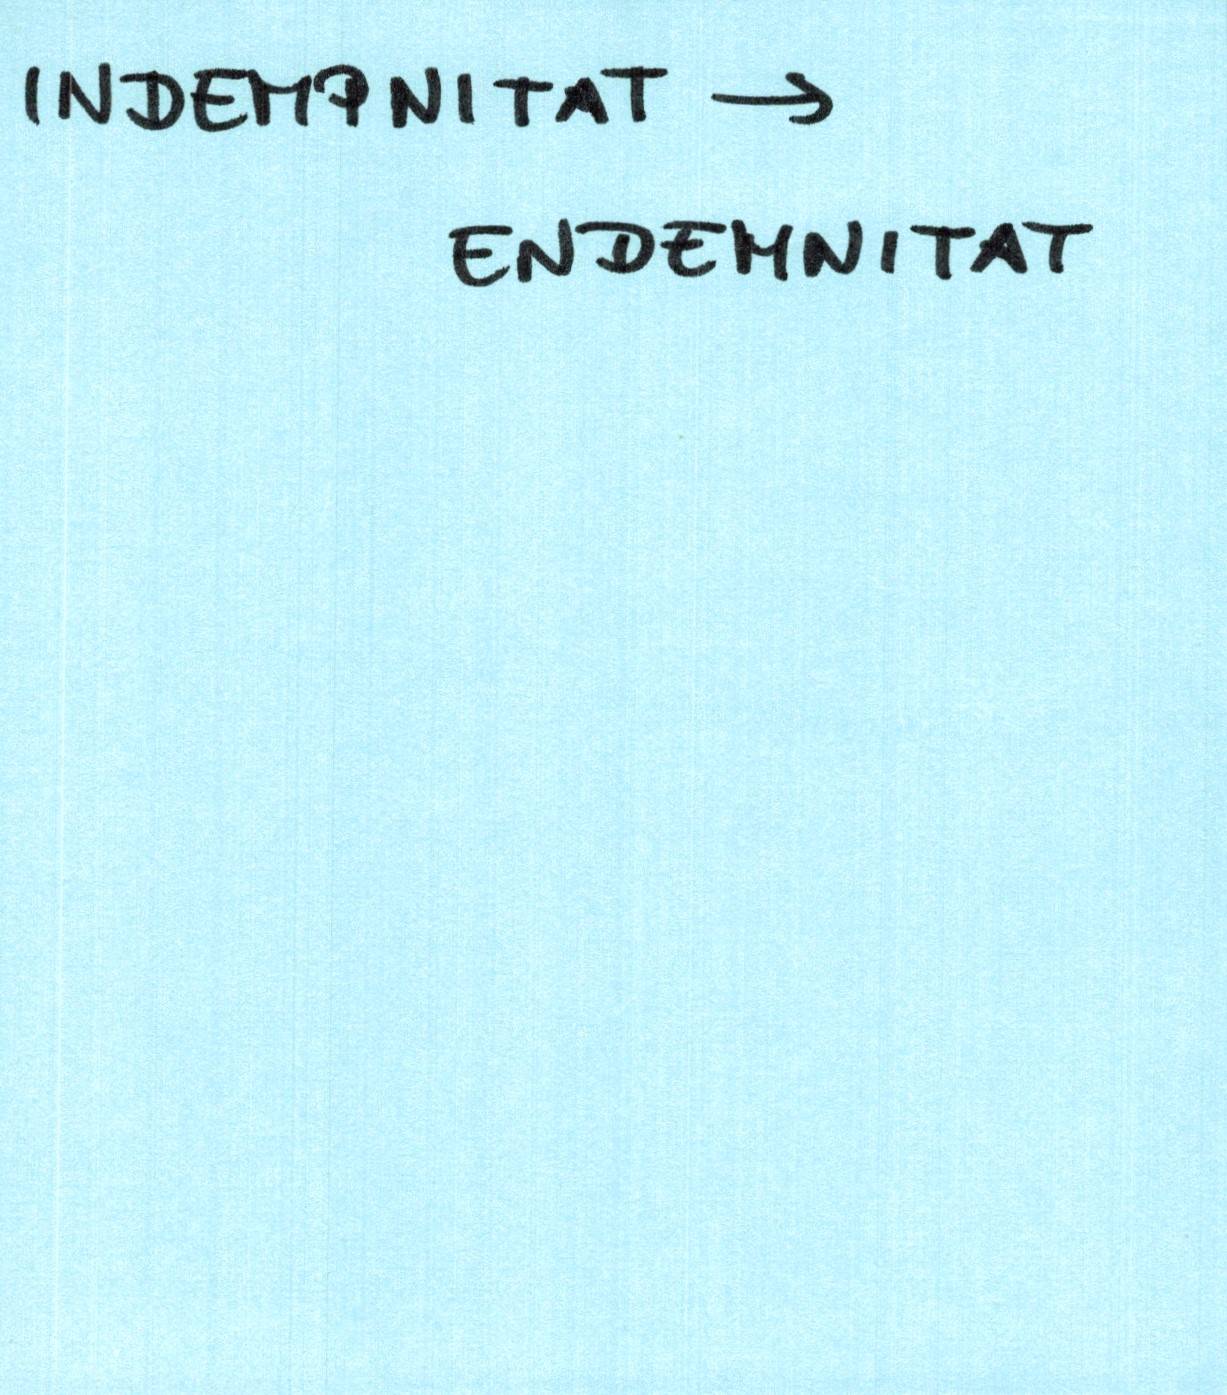 INDEMPNITAT →
ENDEMNITAT